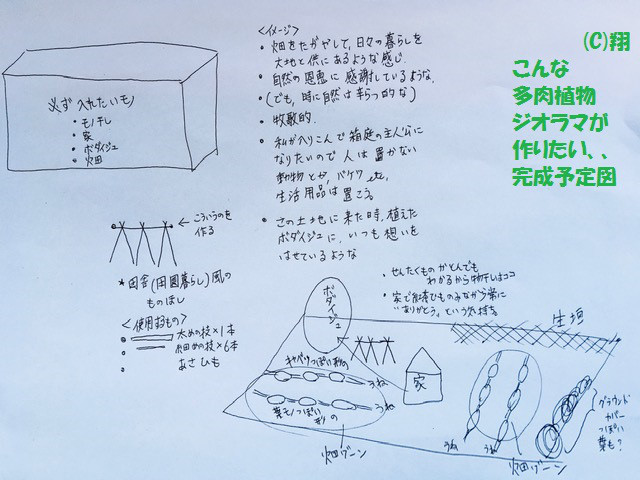 (C)翔
こんな
多肉植物
ジオラマが
作りたい、、
完成予定図
必ず入れたいモノ
・モノホし
・家
・ボダイジュ
・畑
<イメージ>
・畑をたがやして、日々の暮らしを
大地と供にあるような感じ.
・自然の恩恵に感謝しているような.
・(でも、時に自然は辛らつ的な)
・牧歌的.
・私が入りこんで箱庭の主人公に
なりたいので人は置かない
動物とか、バケツ etc,
生活用品は置こう。
・この土地に来た時、植えた
ボダイジュに、いつも想いを
はせているような
こういうのを
作る
*田舎(田園暮らし)風の
ものほし
<使用するもの>
太めの枝×1本
細めの枝×6本
あさひも
・せんたくものがとんでも
わかるから物干しはココ
"ありがとう"という気持ち
ボダイジュ
生垣
キャベツっぽい形の
うね
葉モノっぽい
形の
うね
畑ゾーン
家
うね
うね
畑ゾーン
グラウンド
カバー
っぽい
葉も?